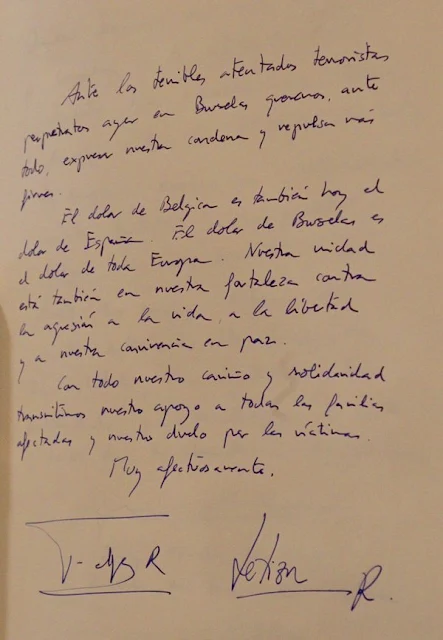 Ante los terribles atentados terroristas
perpetrados ayer en Bruselas queremos, ante
todo, expresar nuestra condena y repulsa más
firmes.
El dolor de Bélgica es también hoy el
dolor de España. El dolor de Bruselas es
el dolor de toda Europa. Nuestra unidad
está también en nuestra fortaleza contra
la agresión a la vida, a la libertad
y a nuestra convivencia en paz.
Con todo nuestro cariño y solidaridad
transmitimos nuestro apoyo a todas las familias
afectadas y nuestro duelo por las víctimas.
Muy afectuosamente,
R
Letizia R.